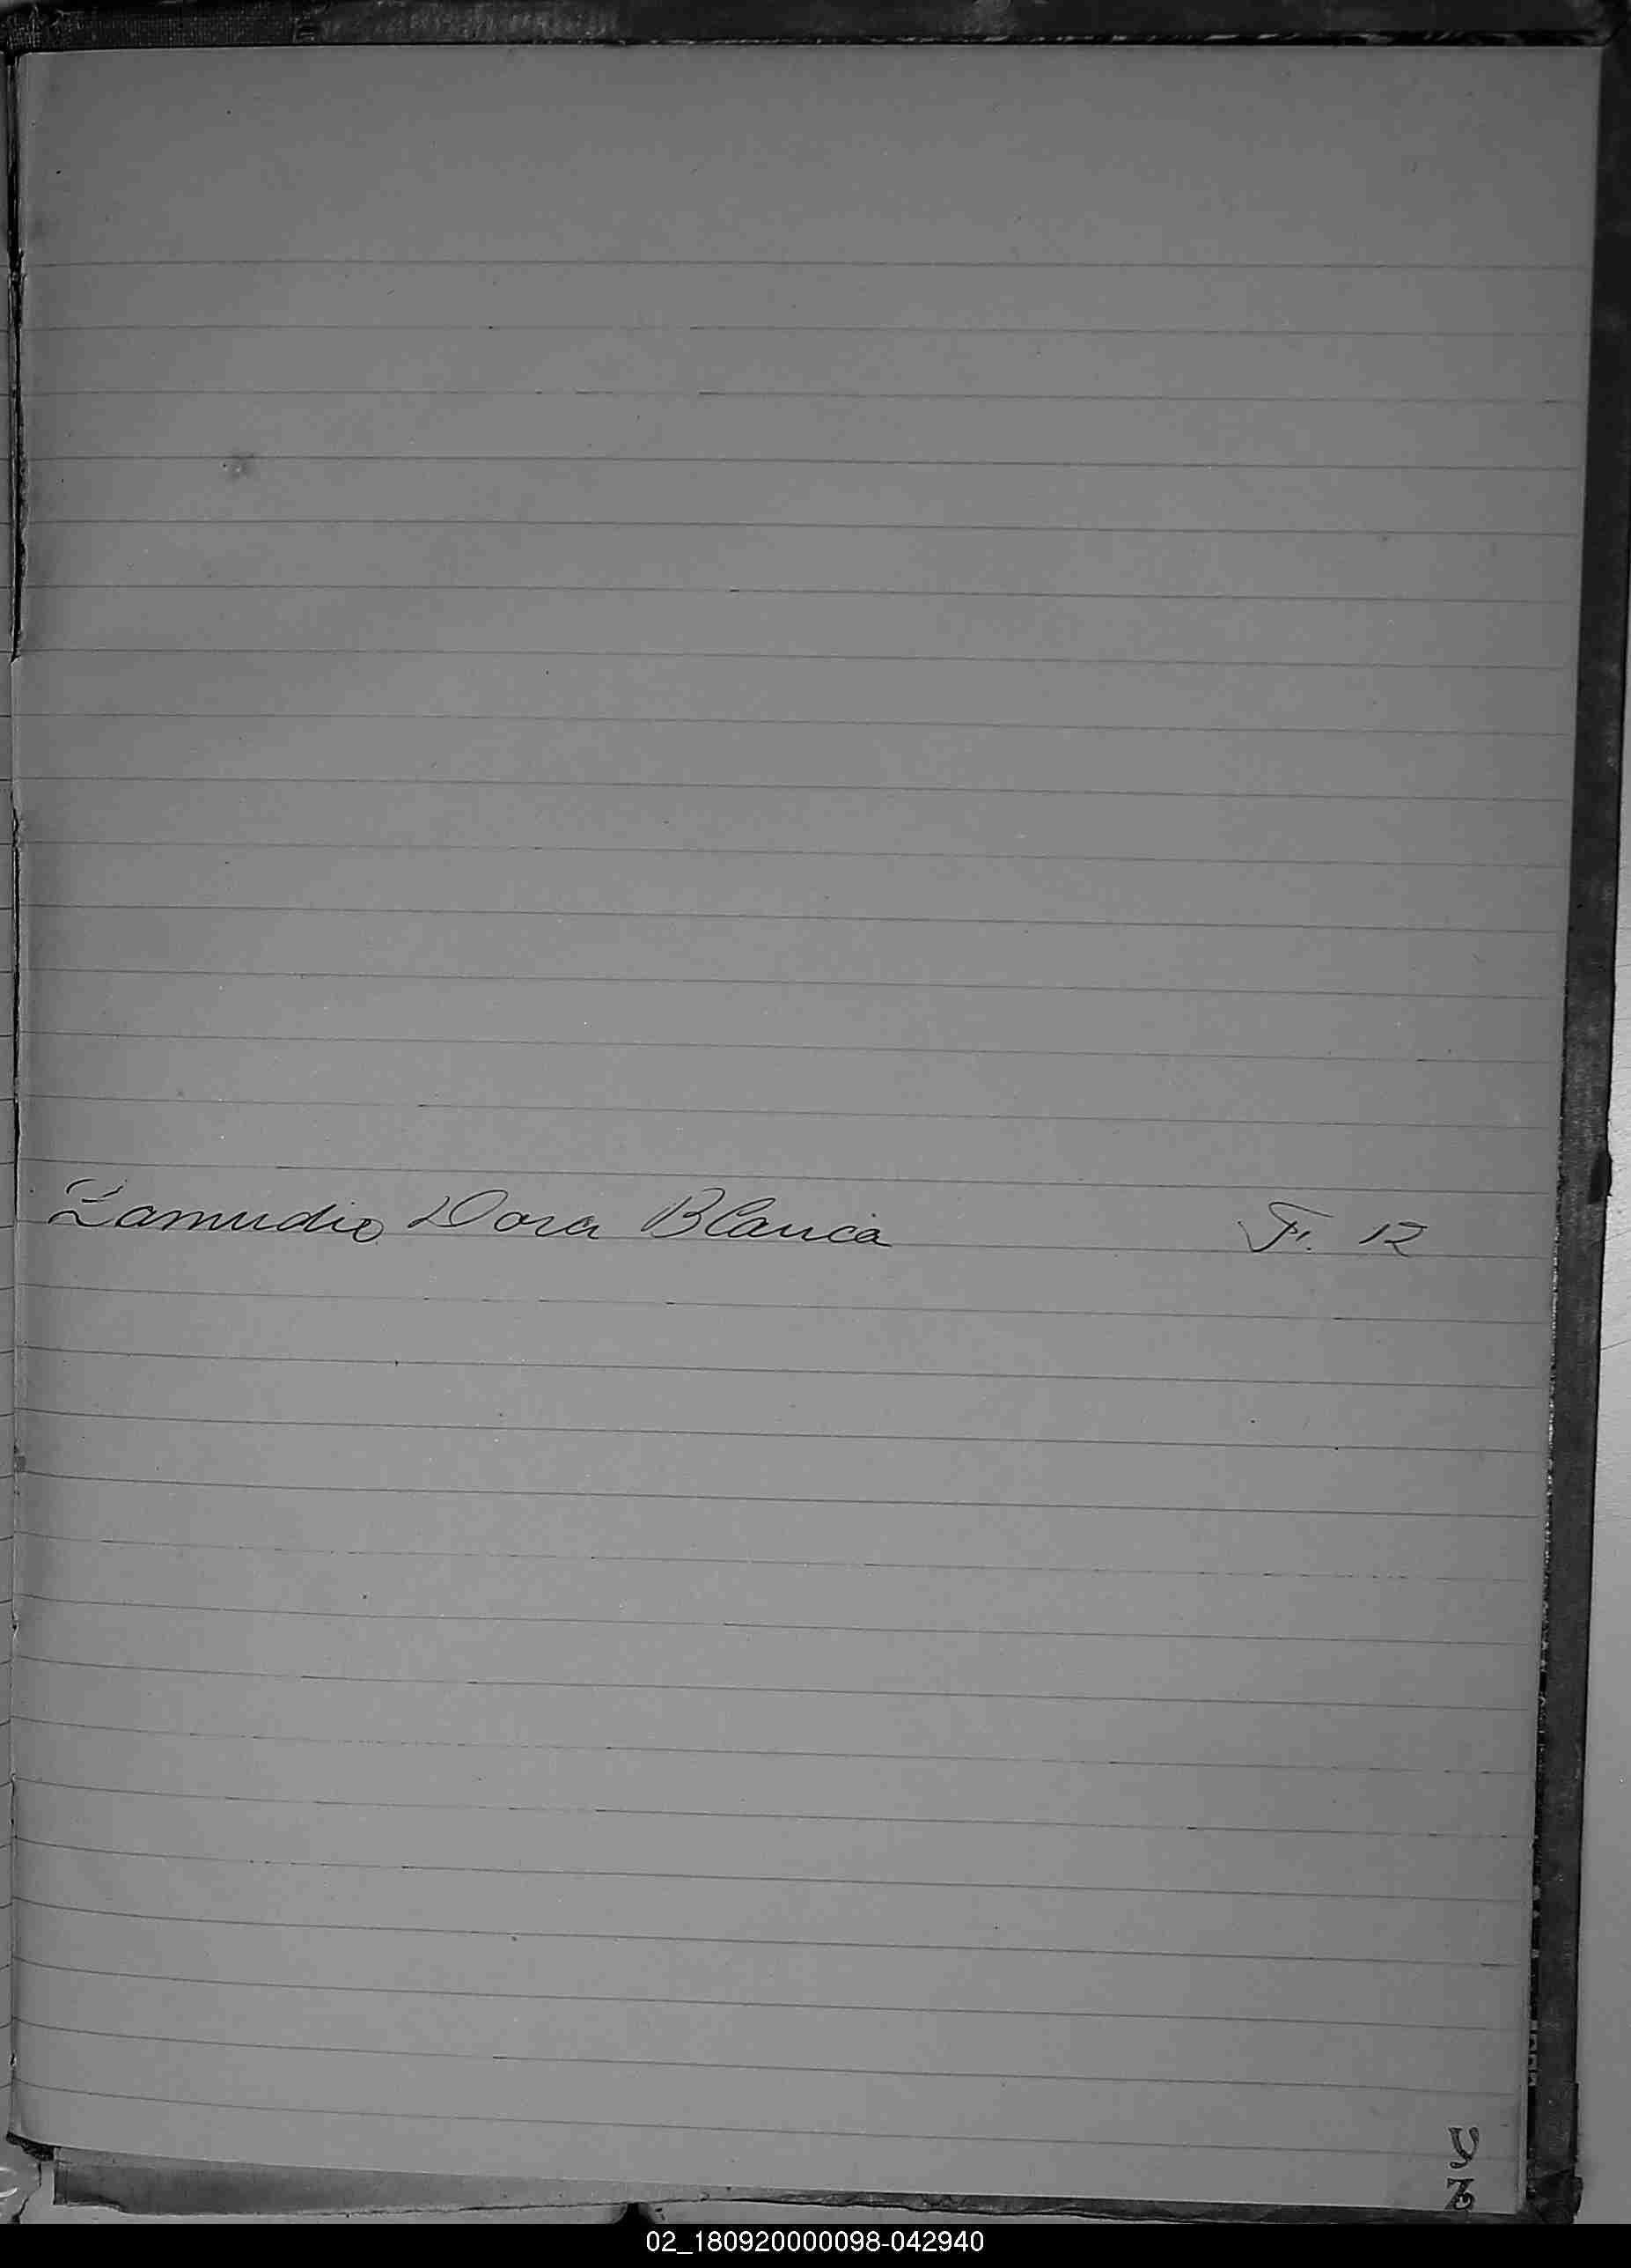 Zamudio Dora Blanca F. 12
Y
Z
02_180920000098-042940